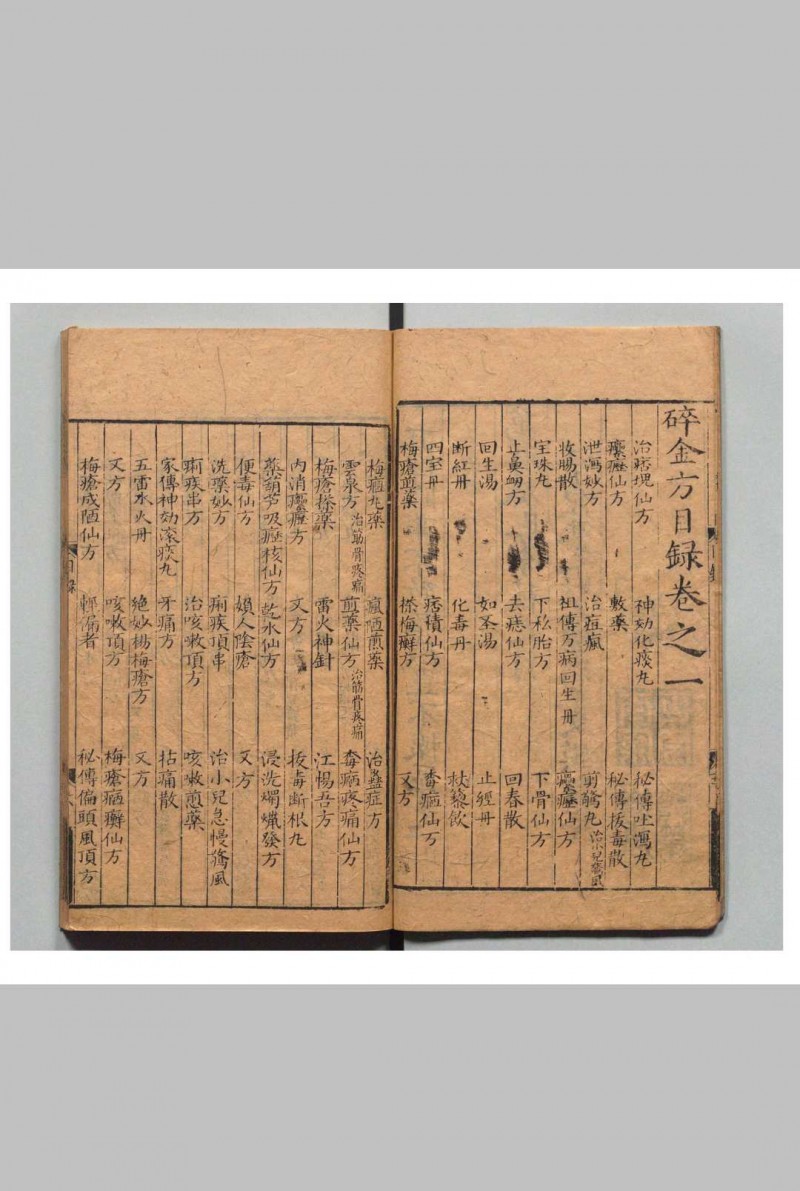 碎金方目録卷之一
治痞塊仙方 神効化痰丸 秘傳吐瀉丸
瘰癧仙方 敷藥 秘傳拔毒散
泄瀉妙方 治疽瘋 剪驚丸 治小兒驚風
牧腸散 祖傳万病回生丹 瘟癧仙方
宝珠丸 下私胎方 下骨仙方
止鼻衂方 去痣仙方 回春散
回生湯 如圣湯 止經丹
断紅丹 化毒丹 杖藜飲
四宝丹 痞積仙方 毒瘡仙方
梅瘡煎藥 搽梅癬方 又方
梅瘡丸藥 瘋煎藥 治蠱症方
雲泉方 治筋骨疼痛 煎藥仙方 治筋骨疼痛 毒病疼痛仙方
梅瘡搽藥 雷火神針 江惕吾方
内消瘰癧方 又方 拔毒断根丸
藥葫芦吸癧核仙方 乾水仙方 浸洗燭蝋發方
便毒仙方 嬾人陰瘡 又方
洗藥妙方 痢疾頂串 治小兒急慢驚風
痢疾串方 治咳嗽頂方 咳嗽煎藥
家傳神効滚痰丸 牙痛方 拈痛散
五雷水火丹 絶妙楊梅瘡方 又方
又方 咳嗽頂方 梅瘡癬仙方
梅瘡成陋仙方 輕漏者 秘傳偏頭風頂方
目録